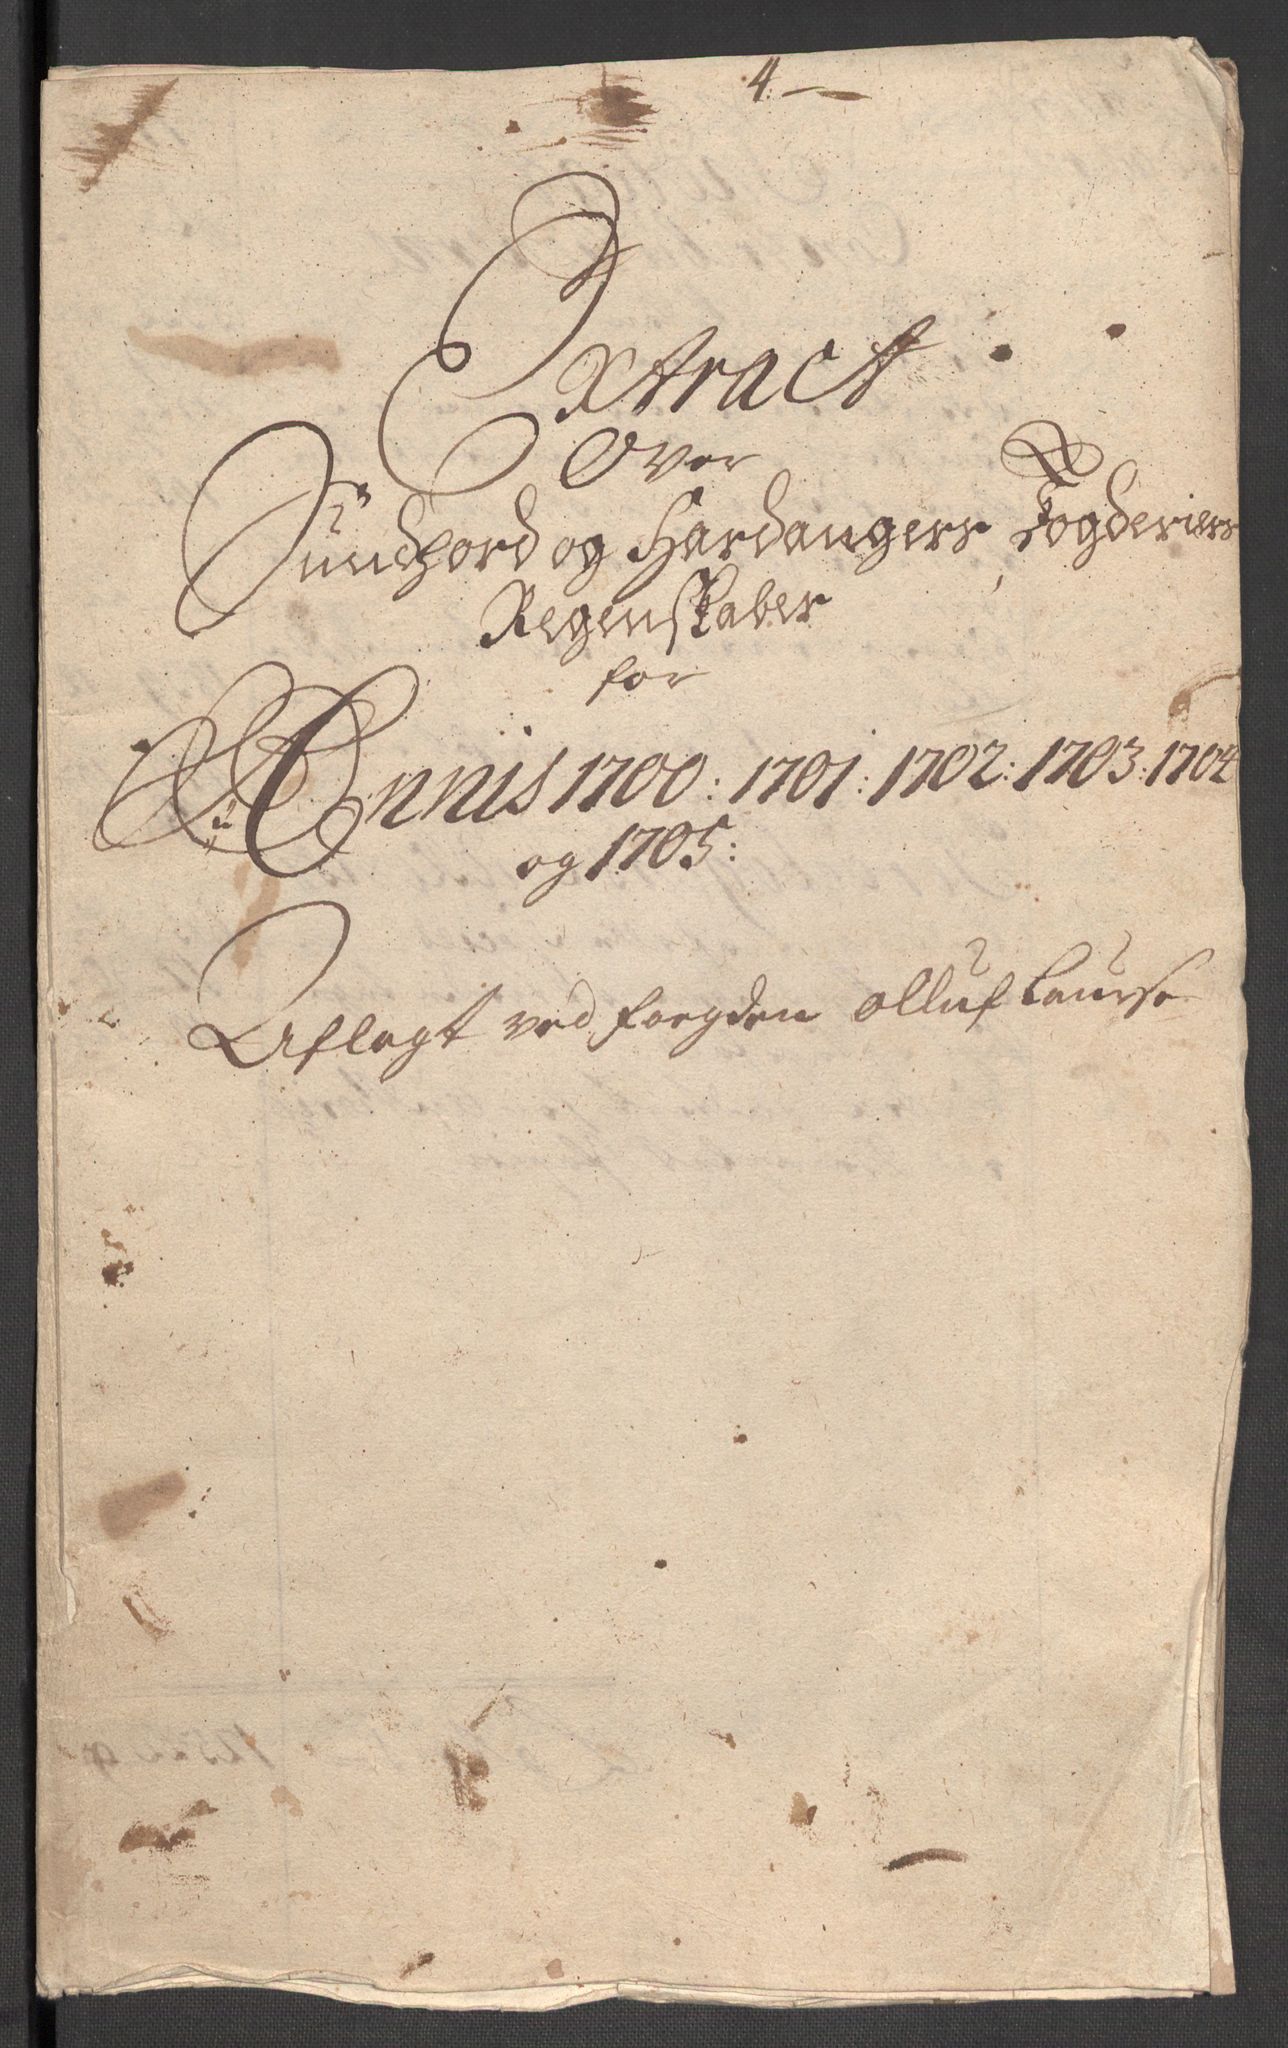 4
Extract
Over
Sundhord og Hardangers Fogderiers
Regenskaber
for
Annis 1700: 1701: 1702: 1703: 1704
og 1705:
Aflagt ved foegden olluf Laurse